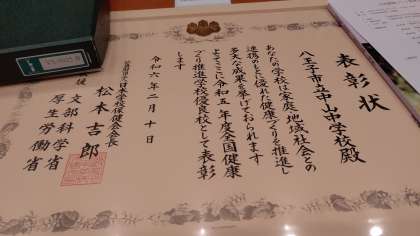 表彰状
八王子市立中山中学校殿
あなたの学校は家庭、地域社会との
連携のもとに優れた健康づくりを推進し
多大な成果を挙げておられます
よってここに令和五年度全国健康
づくり推進学校優良校として表彰
します
令和六年二月十日
公益財団法人日本学校保健会会長
松本吉郎
後援
文部科学省
厚生労働省